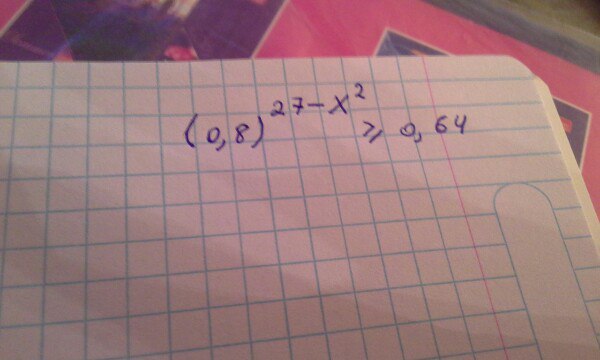 (0,8)^{27-x^2} ⩾ 0,64